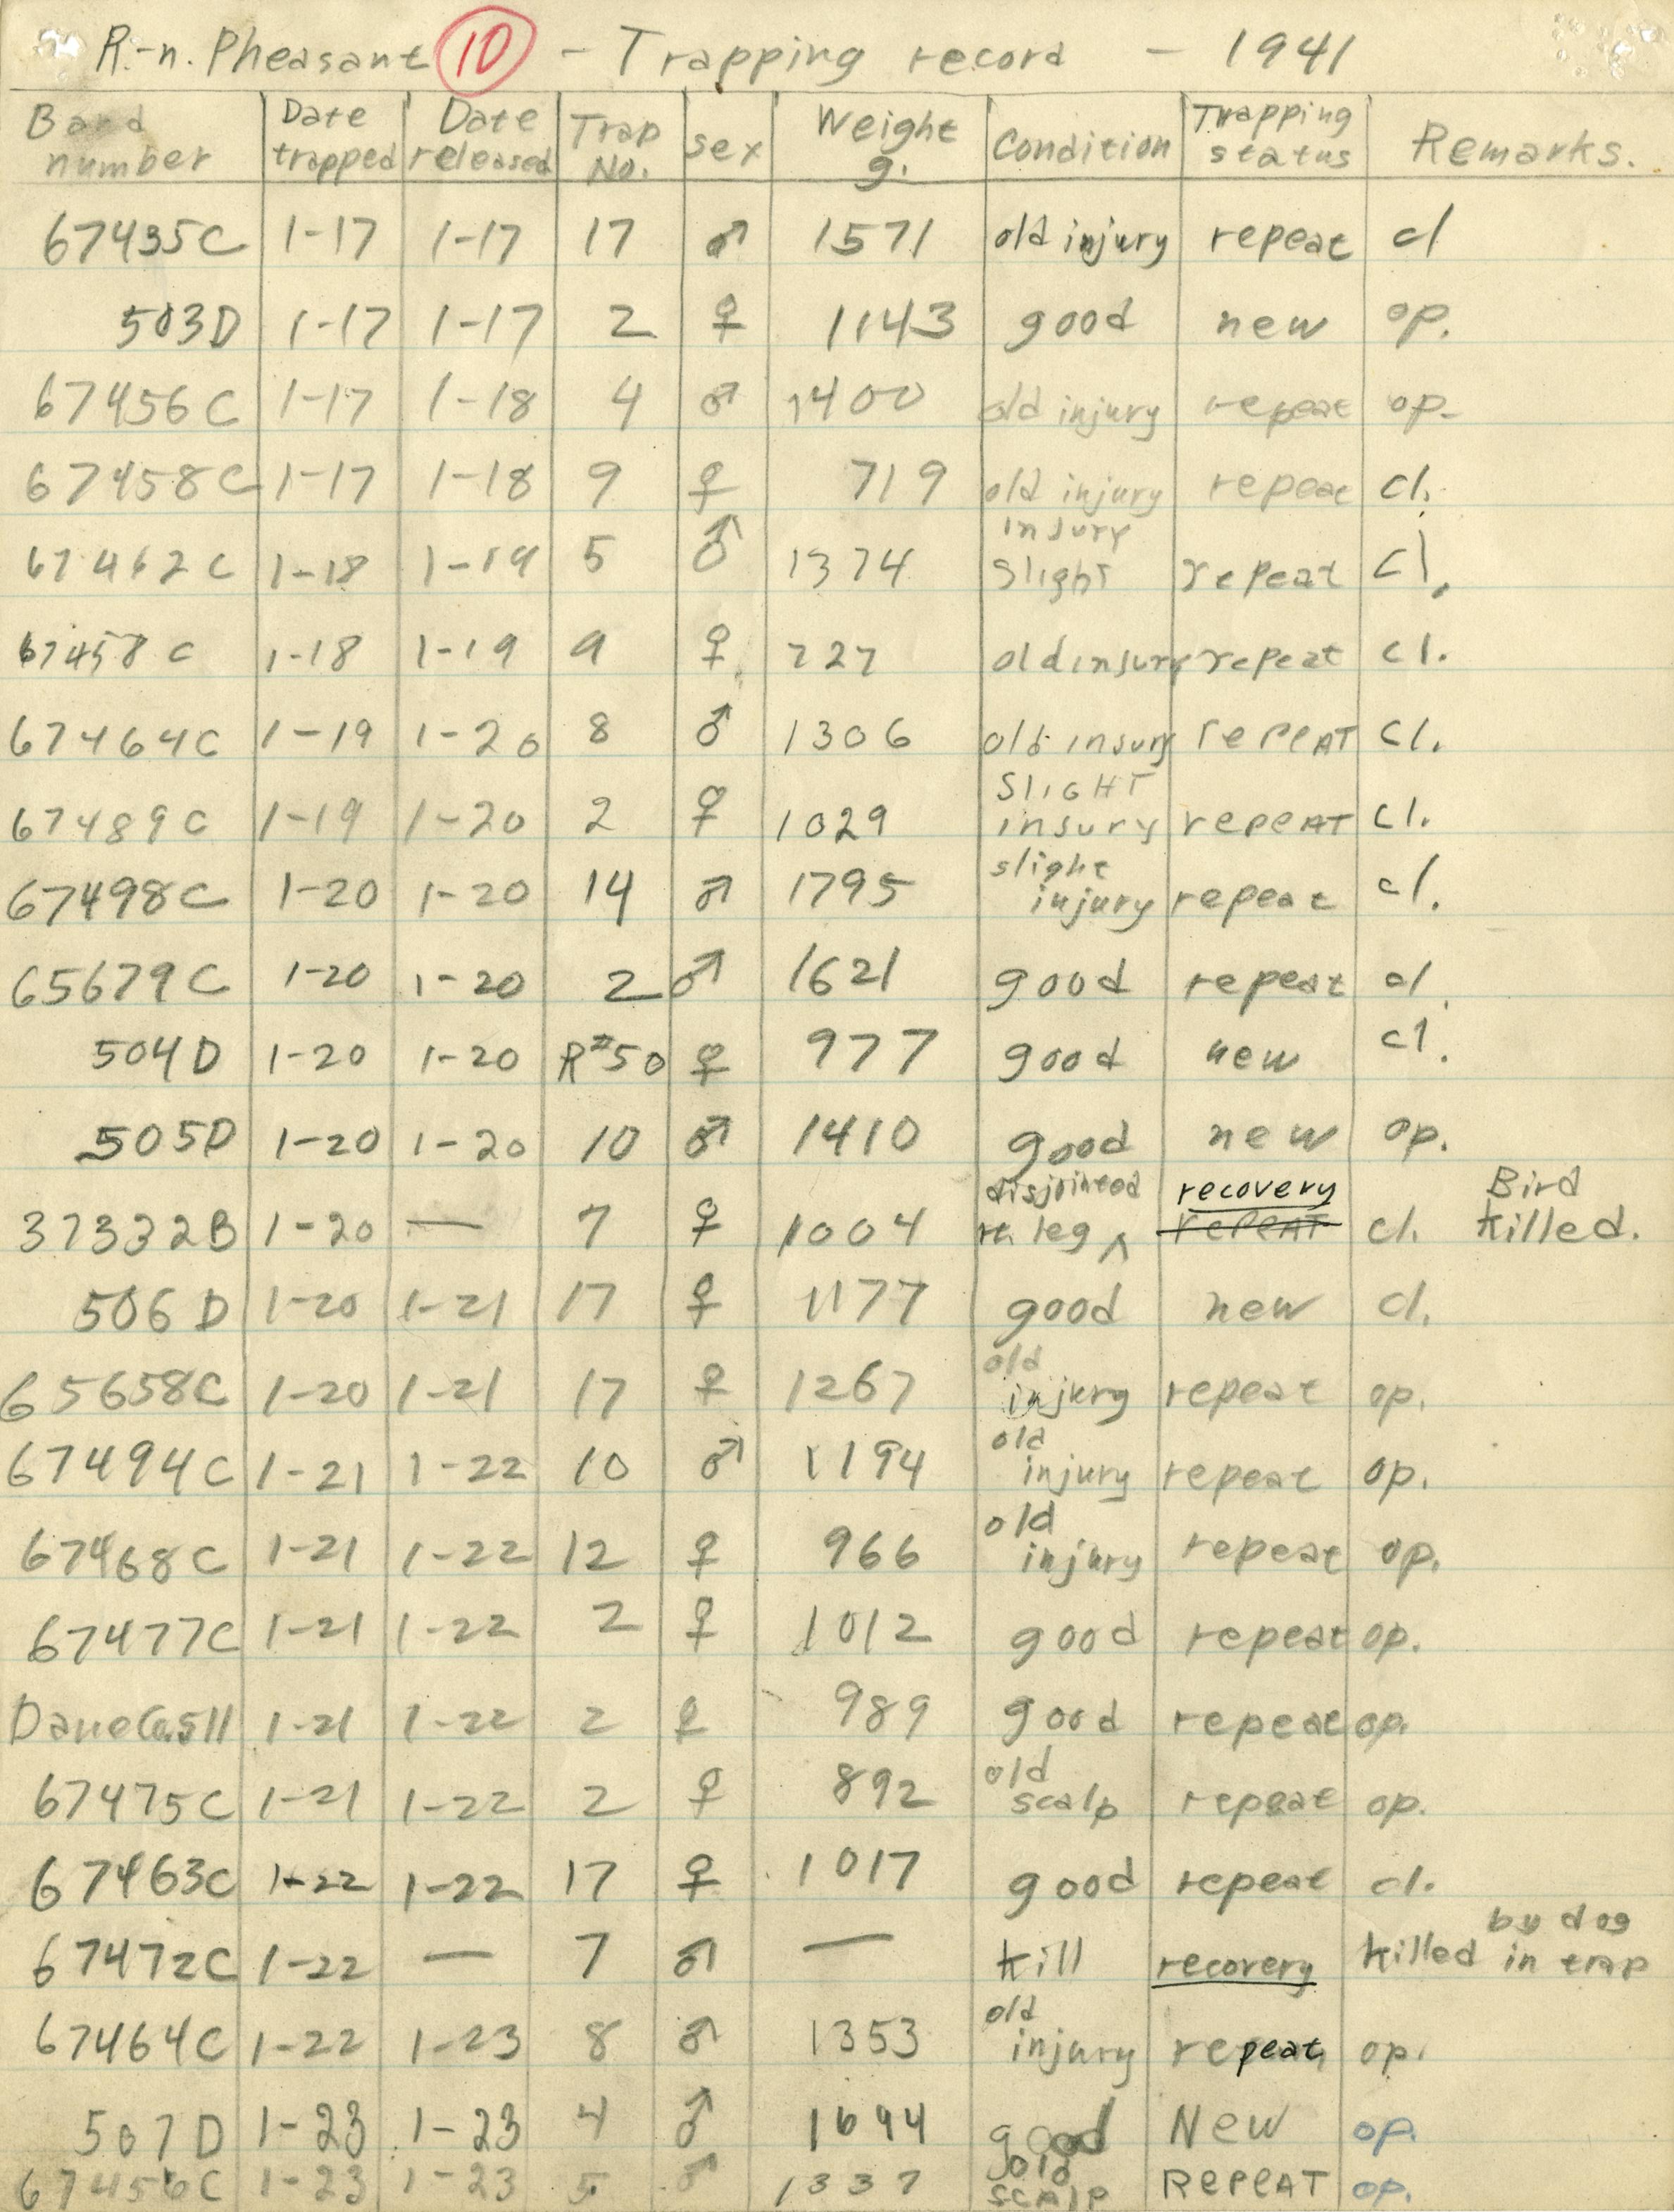 R.-n. Pheasant 10 - Trapping record - 1941
Band number | Date trapped | Date released | Trap No. | sex | Weight g. | Condition | Trapping status | Remarks.
67435C 1-17 1-17 17 ♂ 1571 old injury repeat cl
503D 1-17 1-17 2 ♀ 1143 good new op.
67456C 1-17 1-18 4 ♂ 1400 old injury repeat op.
67458C 1-17 1-18 9 ♀ 719 old injury repeat cl.
67462C 1-18 1-19 5 ♂ 1374 injury slight repeat cl.
67458C 1-18 1-19 9 ♀ 727 old injury repeat cl.
67464C 1-19 1-20 8 ♂ 1306 old injury repeAT cl.
67489C 1-19 1-20 2 ♀ 1029 SLIGHT injury repeAT cl.
67498C 1-20 1-20 14 ♂ 1795 slight injury repeat cl.
65679C 1-20 1-20 2 ♂ 1621 good repeat cl.
504D 1-20 1-20 R#50 ♀ 977 good new cl.
505D 1-20 1-20 10 ♂ 1410 good new op.
37332B 1-20 — 7 ♀ 1004 disjointed rt. leg recovery repeAT cl. Bird killed.
506D 1-20 1-21 17 ♀ 1177 good new cl.
65658C 1-20 1-21 17 ♀ 1267 old injury repeat op.
67494C 1-21 1-22 10 ♂ 1194 old injury repeat op.
67468C 1-21 1-22 12 ♀ 966 old injury repeat op.
67477C 1-21 1-22 2 ♀ 1012 good repeat op.
Dane Co. 511 1-21 1-22 2 ♀ 989 good repeat op.
67475C 1-21 1-22 2 ♀ 892 old scalp repeat op.
67463C 1-22 1-22 17 ♀ 1017 good repeat cl.
67472C 1-22 — 7 ♂ — kill recovery killed by dog in trap
67464C 1-22 1-23 8 ♂ 1353 old injury repeat op.
507D 1-23 1-23 4 ♂ 1694 good New op.
67456C 1-23 1-23 5 ♂ 1337 old scalp REPEAT op.